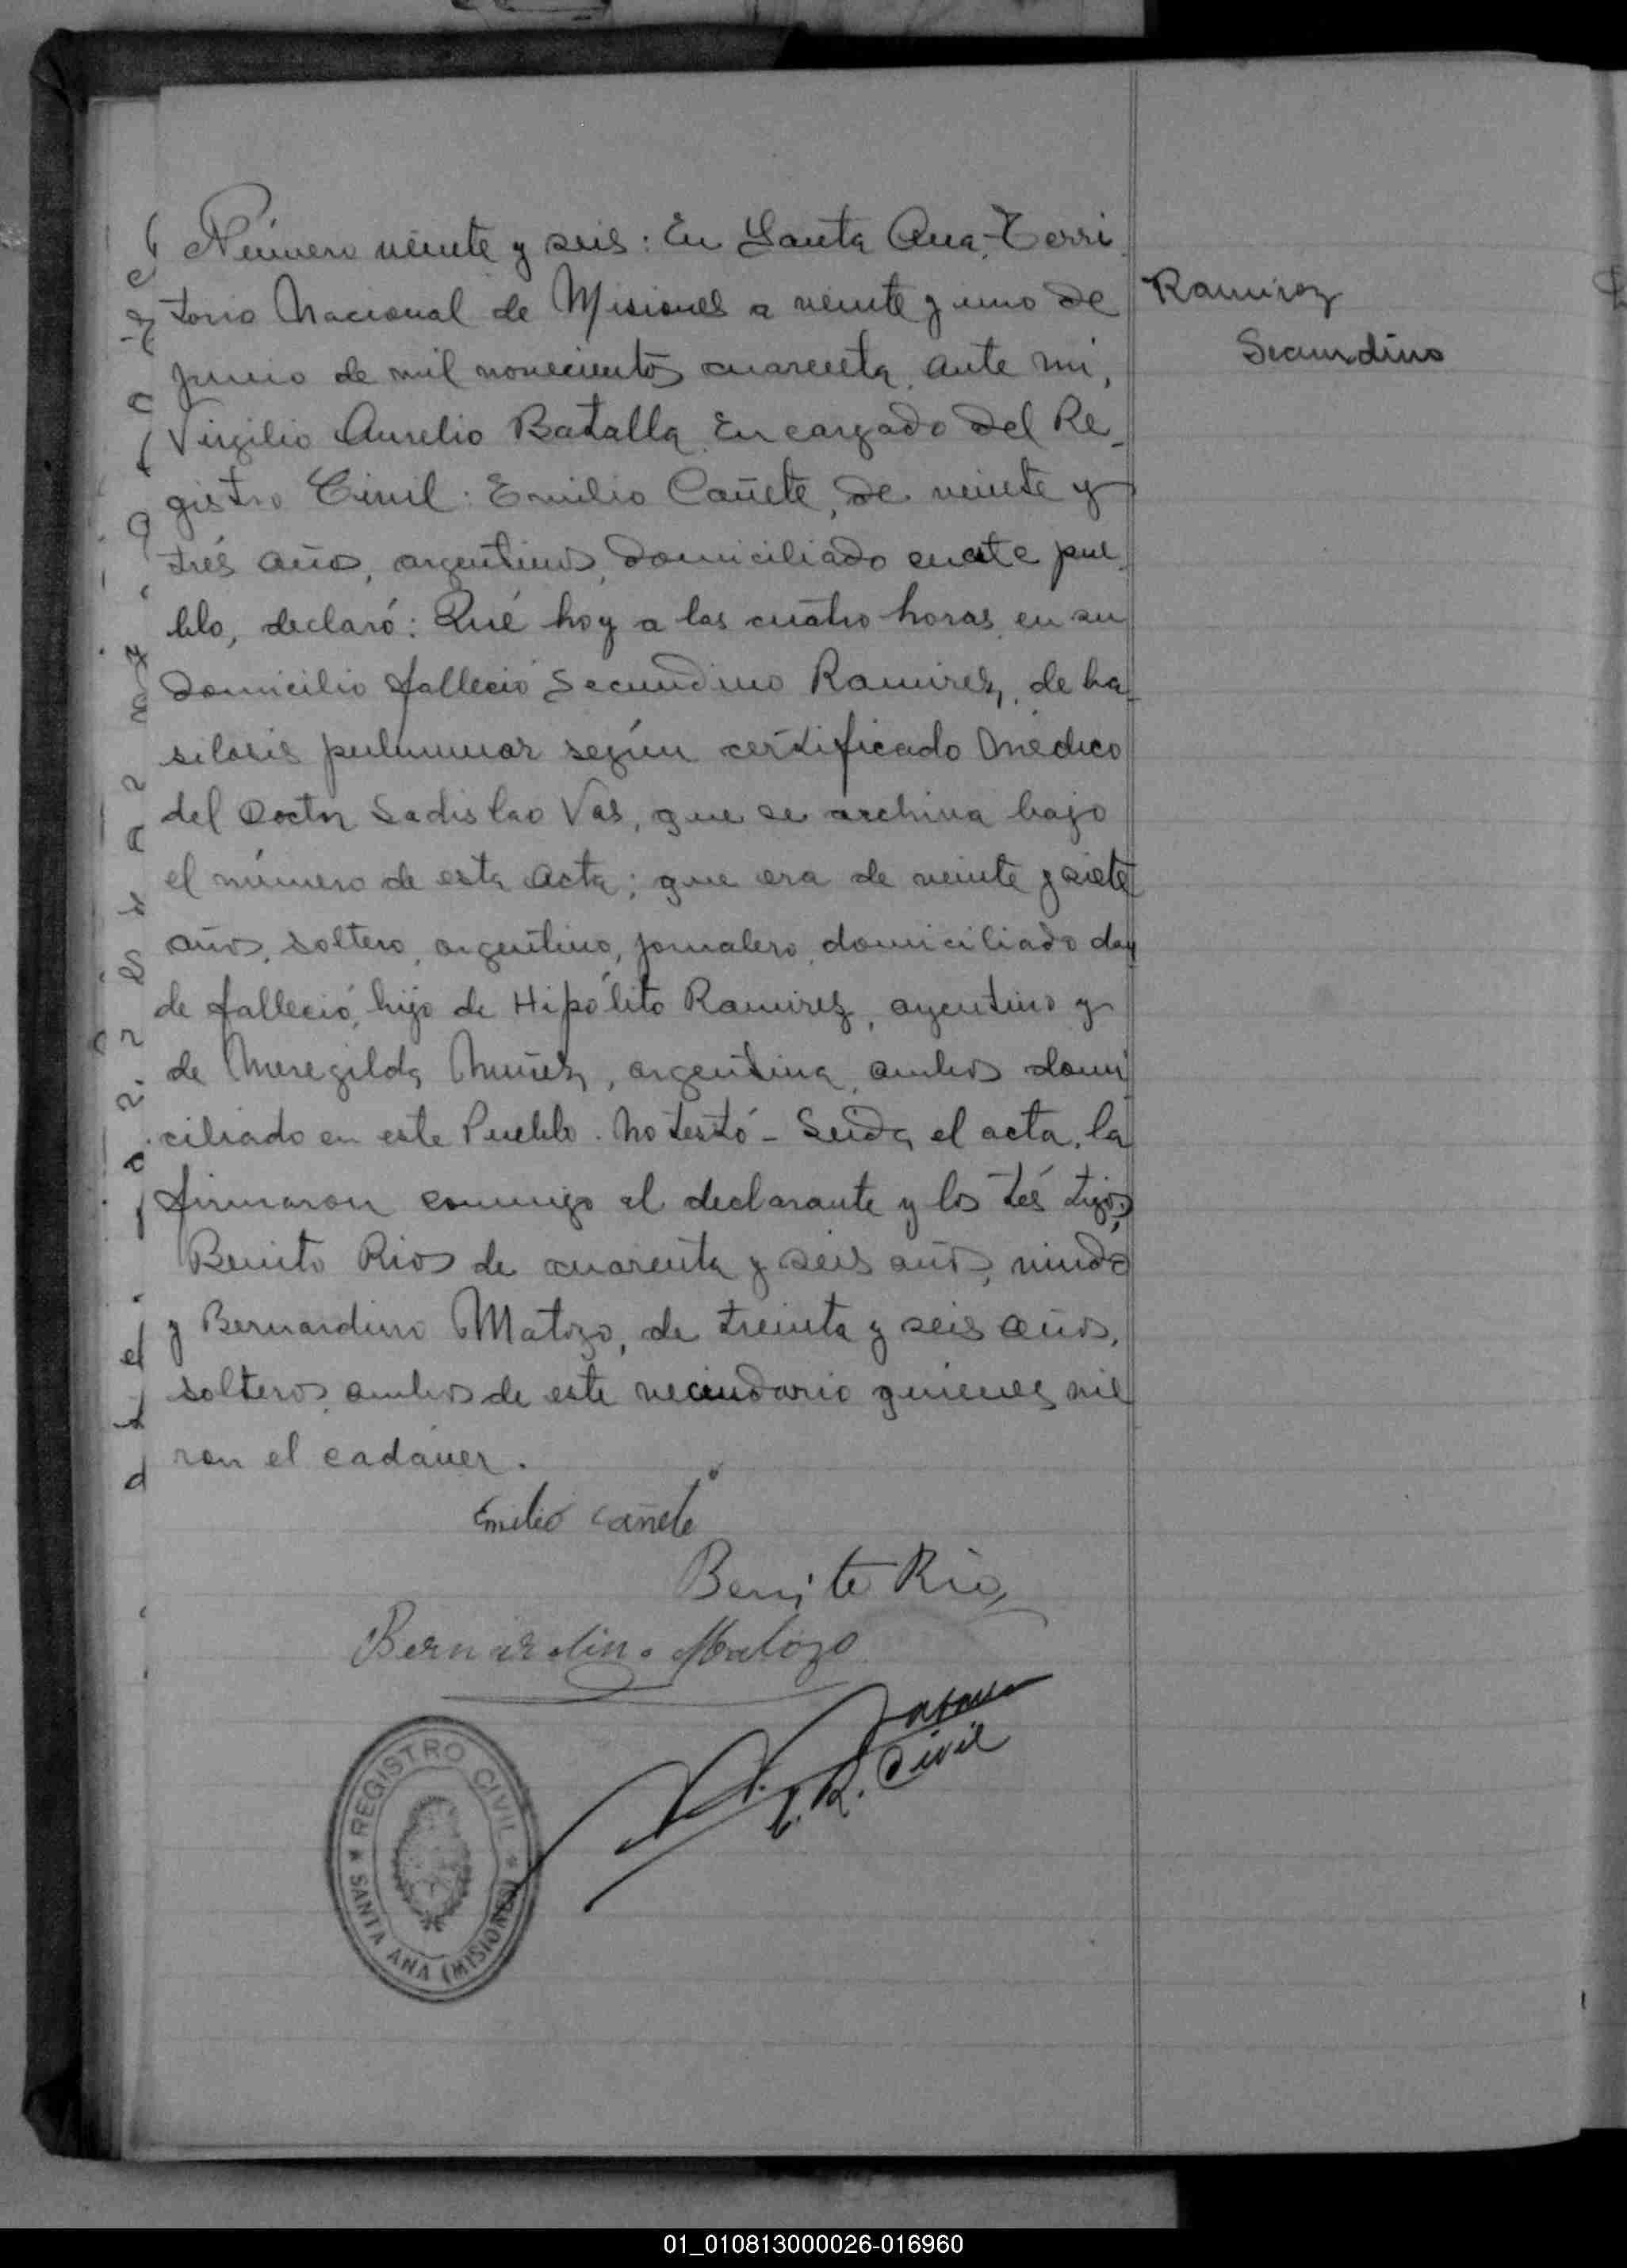 Número veinte y seis: En Santa Ana, Terri
torio Nacional de Misiones a veinte y uno de
Junio de mil novecientos cuarenta, ante mi,
Virgilio Aurelio Batalla, Encargado del Re-
gistro Civil: Emilio Cañete, de veinte y
trés años, argentino, domiciliado en este pue
blo, declaró: Qué hoy a las cuatro horas, en su
domicilio falleció Secundino Ramirez, de ba-
silosis pulmunar según certificado médico
del Doctor Ladislao Vas, que se archiva bajo
el número de esta acta; que era de veinte y siete
años, soltero, argentino, jornalero, domiciliado don
de falleció, hijo de Hipólito Ramirez, argentino y
de Meregilda Muñez, argentina, ambos domi
ciliado en este Pueblo. No testó - Leida el acta, la
firmaron conmigo el declarante y los téstigos,
Benito Rios de cuarenta y seis años, viudo
y Bernardino Matozo, de treinta y seis años,
soltero, ambos de este vecindario quienes vie
ron el cadáver.
Ramirez
Secundino
Emilio Cañete
Benito Rios
Bernardino Matozo
Batalla
E. R. Civil
REGISTRO CIVIL
SANTA ANA (MISIONES)
01_010813000026-016960